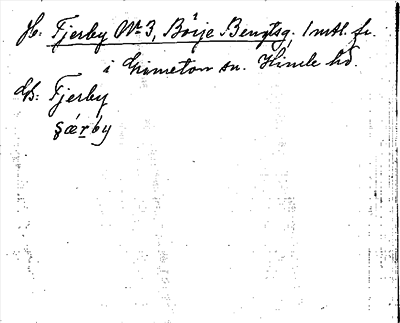 H. Fjerby No 3, Börje Bengtsg. 1 mtl. fr.
i Grimeton sn. Himle hd.
Gb: Fjerby
şæ̱rby